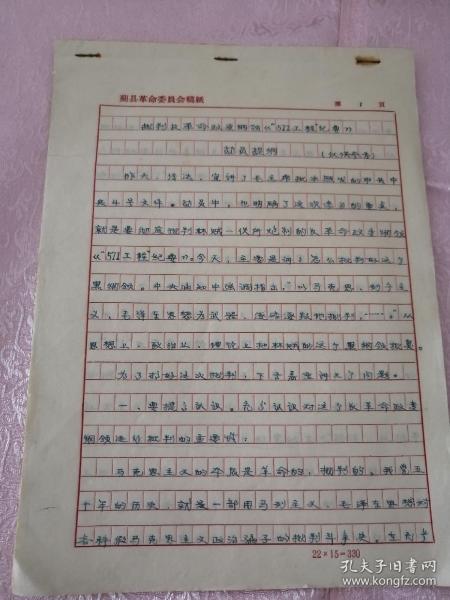 蓟县革命委员会稿纸 第 1 页
批判反革命政变纲领《"571工程"纪要》
动员提纲 (仅供参考)
昨天,传达、宣讲了毛主席批示照发的中共中
央4号文件。动员中,也明确了这次运动的重点,
就是要彻底批判林贼一伙所炮制的反革命政变纲领
《"571工程"纪要》。今天,主要是讲了怎么批判好这个
黑纲领。中央通知中强调指出,"以马克思、列宁主
义、毛泽东思想为武器,逐条逐段地批判,……。"从
思想上、政治上、理论上把林贼的这个黑纲领批臭。
为了打好这次批判,下面着重讲几个问题。
一、要提高认识。充分认识对这个反革命政变
纲领进行批判的重要性:
马克思主义的本质是革命的,批判的。我党五
十年的历史,就是一部用马列主义、毛泽东思想对
各种假马克思主义政治骗子的批判斗争史。
22×15=330
孔夫子旧书网